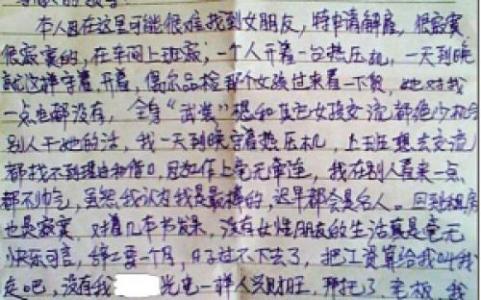 本人因在这里可能很难找到女朋友,特申请解雇,很寂寞
很寂寞的,在车间上班寂,一个人开着一台热压机,一天到晚
就这样守着,开着,偶尔品检那个女孩过来看一下货,她对我
一点电都没有,全身“武装”想和其它女孩交流都绝少机会
别人干她的活,我一天到晚守着热压机,上班想去交流
都找不到理由和借口,因工作上毫无牵连,我在别人看来一点
都不帅气,虽然我认为我是最棒的,迟早都会是名人。回到租房
也是寂寞,对着几本书发呆,没有女性朋友的生活真是毫无
快乐可言,辞工要一个月,日子过不下去了,把工资算给我叫我
走吧,没有我 光电一样人兴财旺,开把了,老板,我